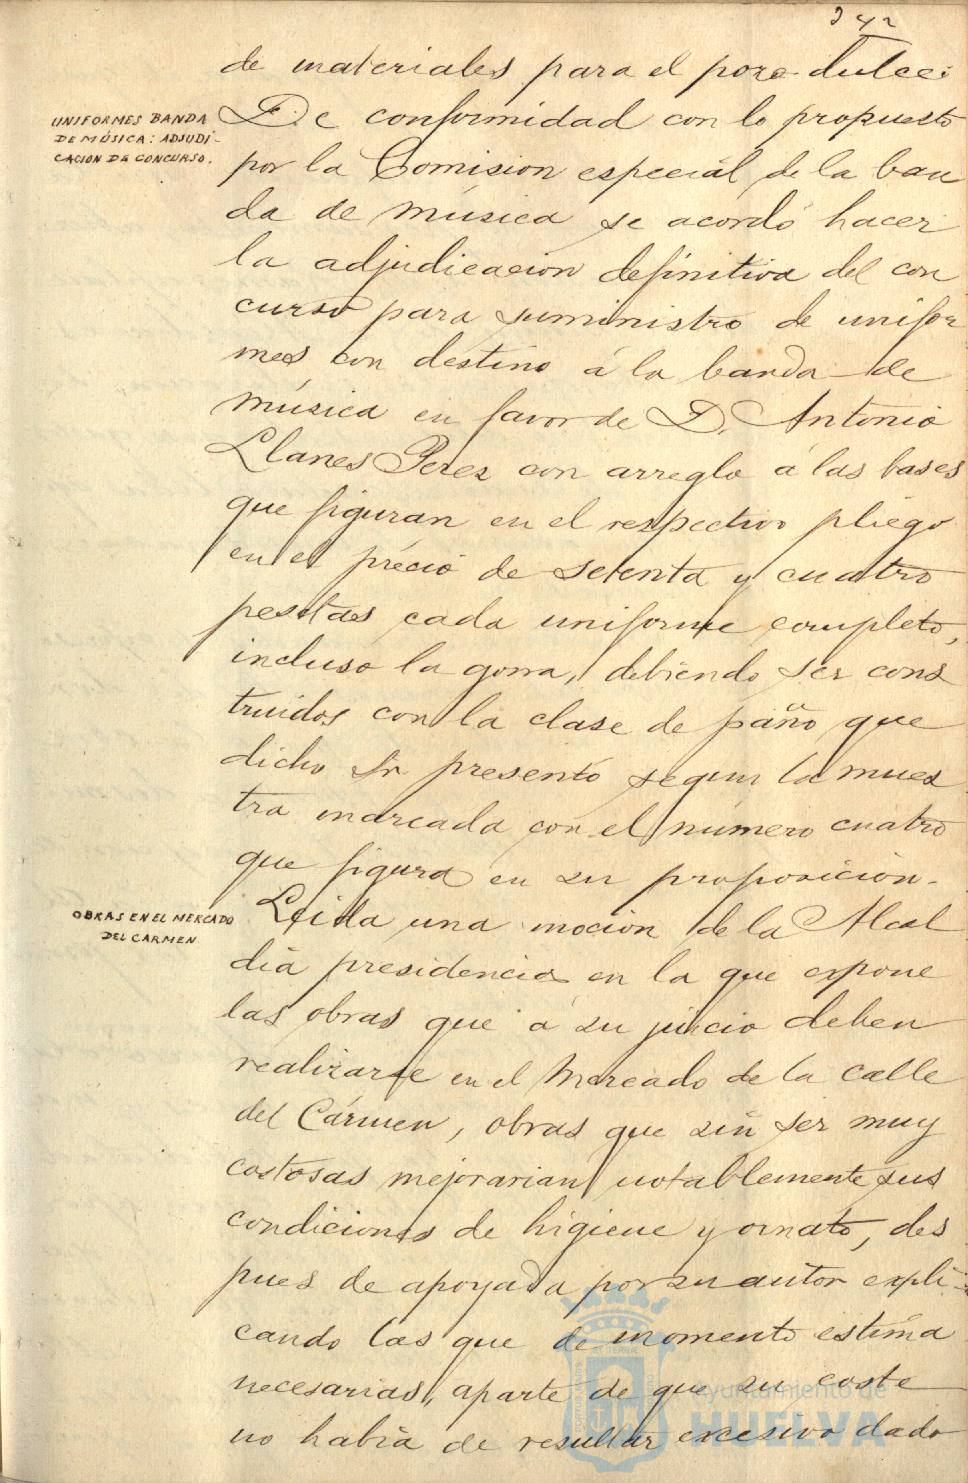 342
de materiales para el pozo dulce:
UNIFORMES BANDA
DE MÚSICA: ADJUDI-
CACION DE CONCURSO.
De conformidad con lo propuesto
por la Comision especial de la ban
da de música se acordó hacer
la adjudicacion definitiva del con
curso para suministro de unifor
mes con destino á la banda de
música en favor de D. Antonio
Llanes Perez con arreglo á las bases
que figuran en el respectivo pliego
en el précio de setenta y cuatro
pesetas cada uniforme completo,
incluso la gorra, debiendo ser cons
truidos con la clase de paño que
dicho Sr presentó segun la mues
tra marcada con el número cuatro
que figura en su proposicion.
OBRAS EN EL MERCADO
DEL CARMEN
Leida una mocion de la Alcal
dia presidencia en la que expone
las obras que á su juicio deben
realizarse en el Mercado de la calle
del Cármen, obras que sin ser muy
costosas mejorarian notablemente sus
condiciones de higiene y ornato, des
pues de apoyada por su autor expli-
cando las que de momento estima
necesarias, aparte de que su coste
no habia de resultar excesivo dado
Ayuntamiento de
HUELVA